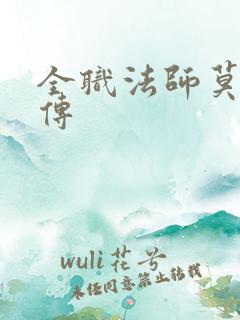 全職法師莫
傳
wuli花兮
未经同意禁止转载